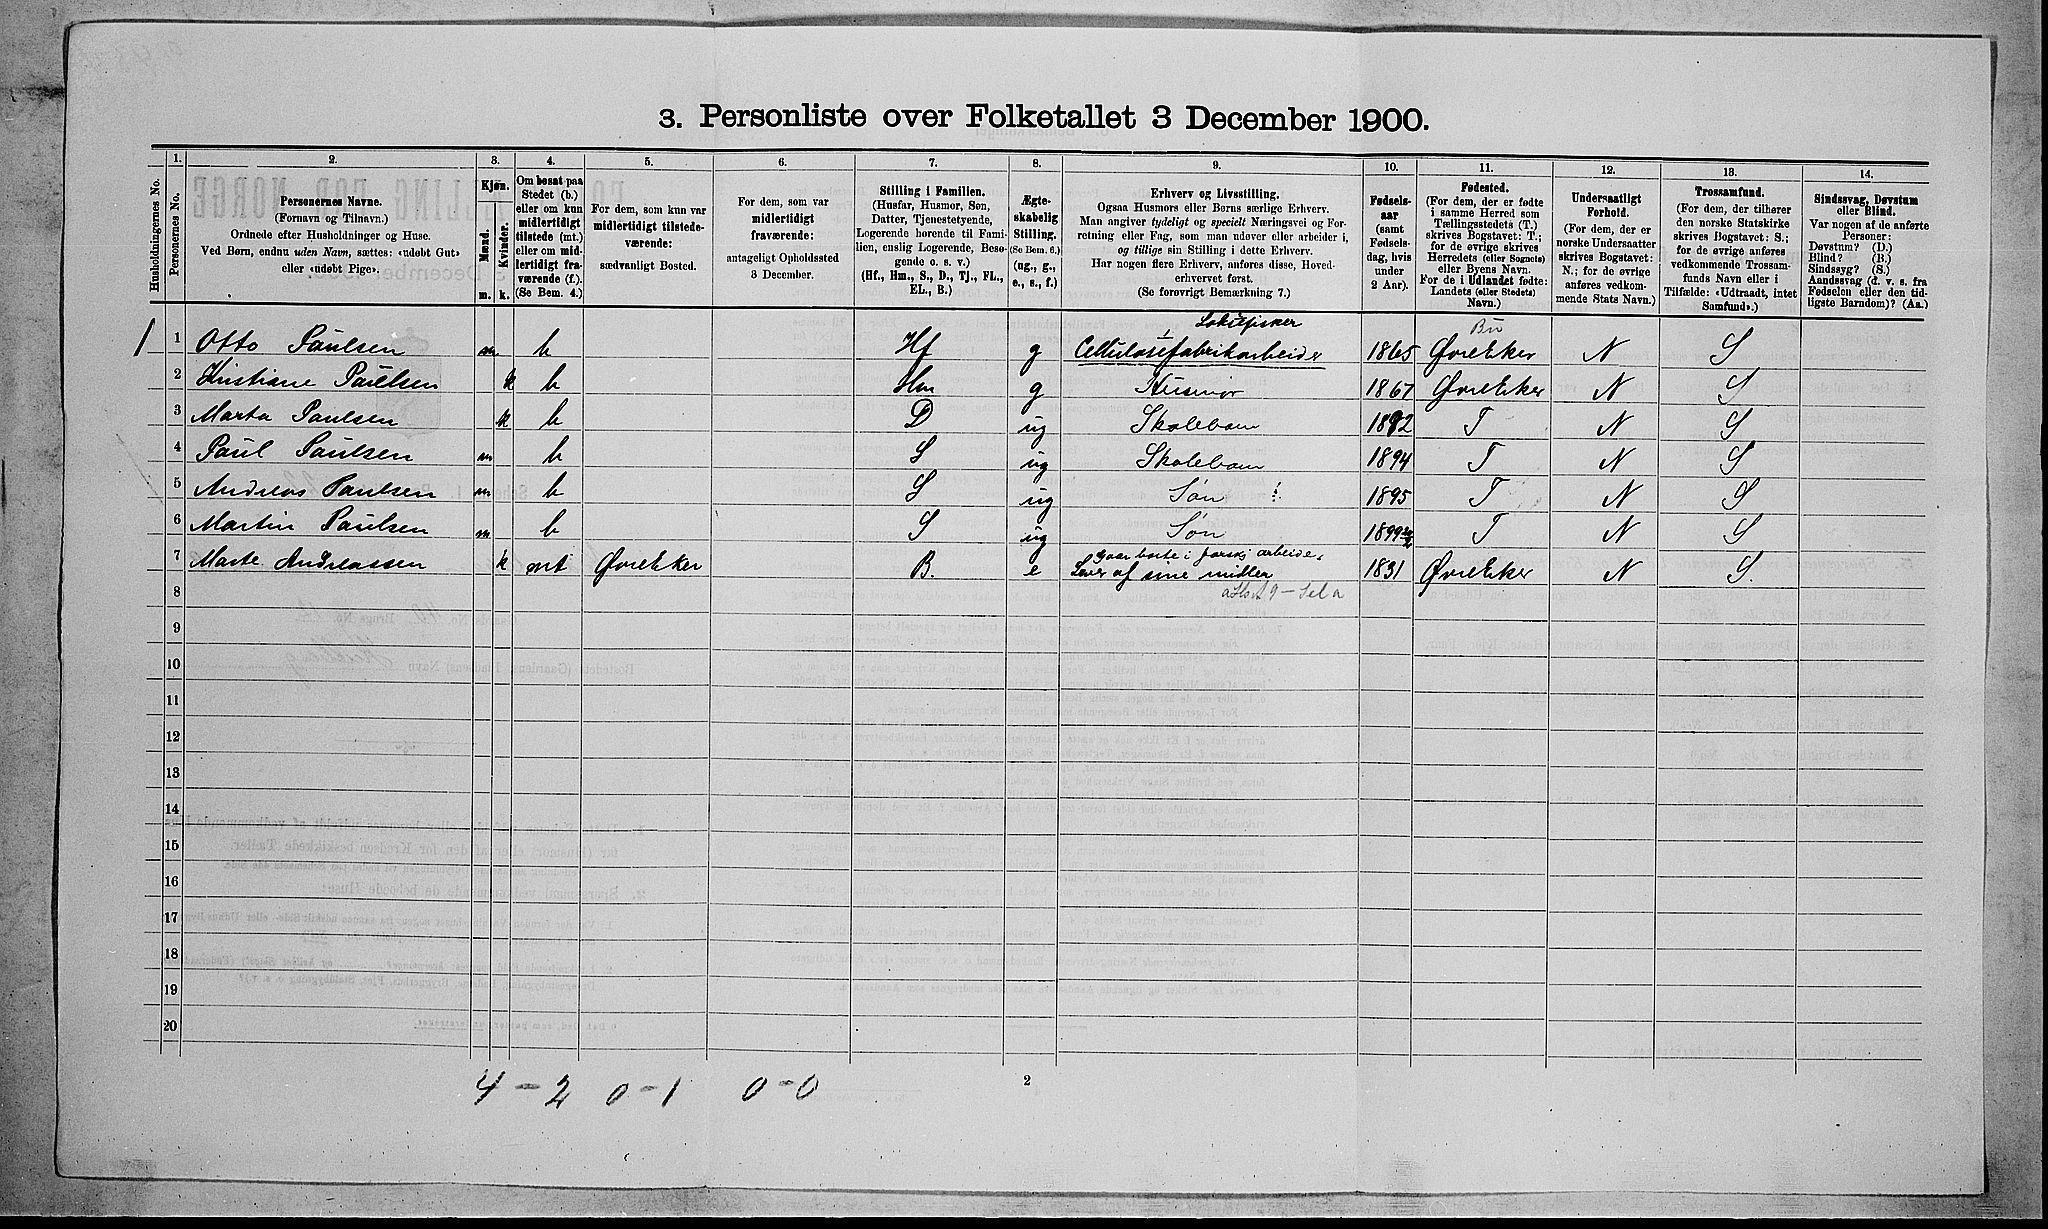 3. Personliste over Folketallet 3 December 1900.
Husholdningernes No.
1.
Personernes No.
2.
Personernes Navne.
(Fornavn og Tilnavn.)
Ordnede efter Husholdninger og Huse.
Ved Børn, endnu uden Navn, sættes: «udøbt Gut»
eller «udøbt Pige».
3.
Kjøn.
Mænd.
Kvinder.
m. k.
4.
Om bosat paa
Stedet (b.)
eller om kun
midlertidigt
tilstede (mt.)
eller om mid-
lertidigt fra-
værende (f.).
(Se Bem. 4.)
5.
For dem, som kun var
midlertidigt tilstede-
værende:
sædvanligt Bosted.
6.
For dem, som var
midlertidigt
fraværende:
antageligt Opholdssted
3 December.
7.
Stilling i Familien.
(Husfar, Husmor, Søn,
Datter, Tjenestetyende,
Logerende hørende til Fami-
lien, enslig Logerende, Besø-
gende o. s. v.)
(Hf., Hm., S., D., Tj., FL.,
EL., B.)
8.
Ægte-
skabelig
Stilling.
(Se Bem. 6.)
(ug., g.,
e., s., f.)
9.
Erhverv og Livsstilling.
Ogsaa Husmors eller Børns særlige Erhverv.
Man angiver tydeligt og specielt Næringsvei og For-
retning eller Fag, som man udøver eller arbeider i,
og tillige sin Stilling i dette Erhverv.
Har nogen flere Erhverv, anføres disse, Hoved-
erhvervet først.
(Se forøvrigt Bemærkning 7.)
10.
Fødsels-
aar
(samt
Fødsels-
dag, hvis
under
2 Aar).
11.
Fødested.
(For dem, der er fødte
i samme Herred som
Tællingsstedets (T.)
skrives Bogstavet: T.;
for de øvrige skrives
Herredets (eller Sognets)
eller Byens Navn.
For de i Udlandet fødte:
Landets (eller Stedets)
Navn.)
12.
Undersaatligt
Forhold.
(For dem, der er
norske Undersaatter
skrives Bogstavet:
N.; for de øvrige
anføres vedkom-
mende Stats Navn.)
13.
Trossamfund.
(For dem, der tilhører
den norske Statskirke
skrives Bogstavet: S.;
for de øvrige anføres
vedkommende Trossam-
funds Navn eller i
Tilfælde: «Udtraadt, intet
Samfund».)
14.
Sindssvag, Døvstum
eller Blind.
Var nogen af de anførte
Personer:
Døvstum? (D.)
Blind? (B.)
Sindssyg? (S.)
Aandssvag (d. v. s. fra
Fødselen eller den tid-
ligste Barndom)? (Aa.)
Bu
1 1 Otto Paulsen m b Hf g Cellulosefabrikarbeider 1865 Øvre Eker N S
2 Kristiane Paulsen k b Hm g Husmor 1867 Øvre Eker N S
3 Marta Paulsen k b D ug Skolebarn 1892 T N S
4 Paul Paulsen m b S ug Skolebarn 1894 T N S
5 Andreas Paulsen m b S ug Søn 1895 T N S
6 Martin Paulsen m b S ug Søn 1899 T N S
Gaar borte i forskj arbeide.
7 Marte Andreassen k mt Øvre Eker B. e Lever af sine midler 1831 Øvre Eker N S.
8
9
10
11
12
13
14
15
16
17
18
19
20
4 - 2 0 - 1 0 - 0 2